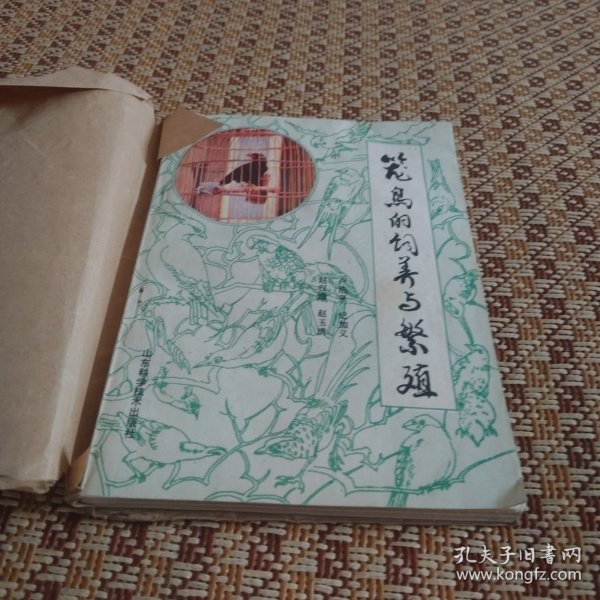 笼鸟的饲养与繁殖
纪加义
赵汉强 赵玉清
山东科学技术出版社
孔夫子旧书网
www.kongfz.com